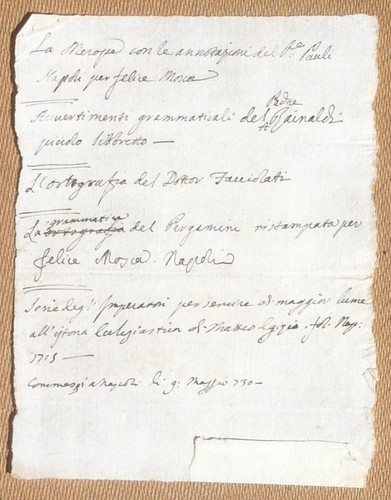 La Merope con le annotazioni del P.re Pauli
Napoli per felice Mosca
Avvertimenti grammaticali del Padre Rainaldi
picciolo libbretto —
L'ortografia del Dottor Facciolati
La ortografia grammatica del Pergamini ristampata per
felice Mosca. Napoli
Serie degl' Imperatori per servire di maggior lume
all'istoria Eclesiastica di Matteo Egizio. fol. Nap:
1715 —
Commessi a Napoli li 9: Maggio 730 —